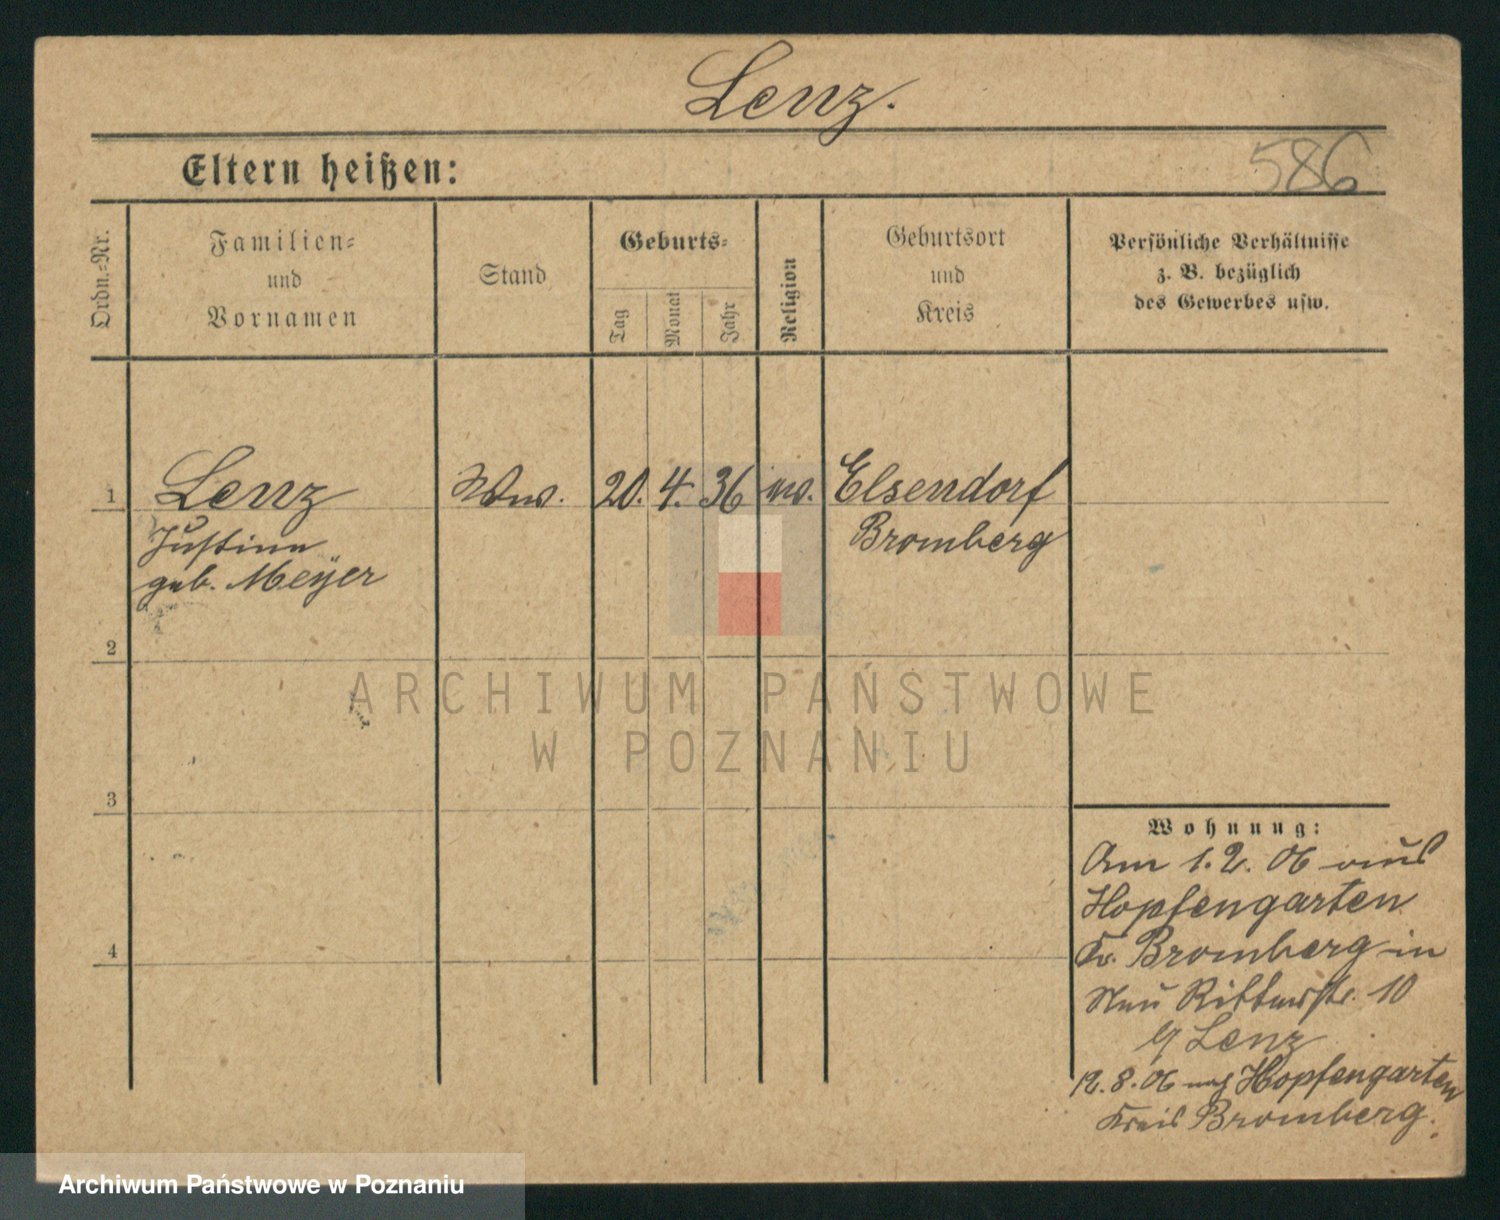 Lenz.
586
Eltern heißen:
Ordn.-Nr.
Familien-
und
Vornamen
Stand
Geburts-
Tag
Monat
Jahr
Religion
Geburtsort
und
Kreis
Persönliche Verhältnisse
z. B. bezüglich
des Gewerbes usw.
1 Lenz Ww. 20. 4. 36 ev. Elsendorf
Justine Bromberg
geb. Meÿer
2
3
4
Wohnung:
Am 1.2.06 aus
Hopfengarten
Kr. Bromberg in
Neu Ritterstr. 10
b/ Lenz
12.8.06 nach Hopfengarten
Kreis Bromberg.
ARCHIWUM PAŃSTWOWE
W POZNANIU
Archiwum Państwowe w Poznaniu